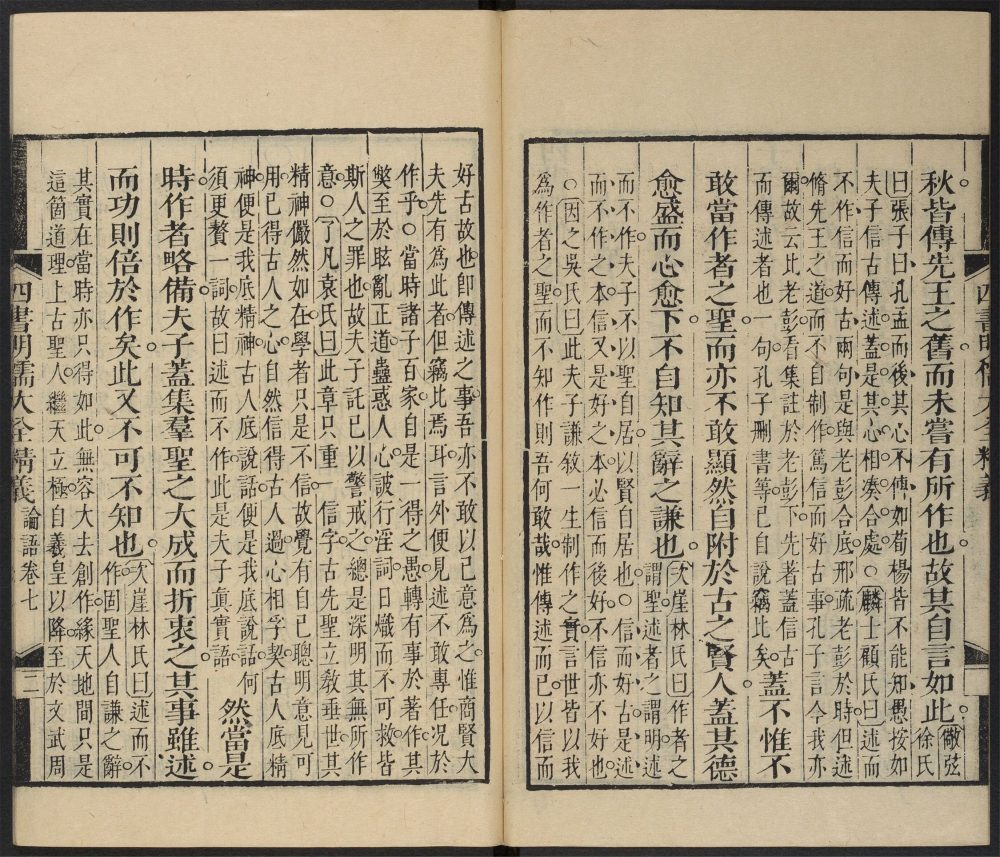 秋皆傳先王之舊而未嘗有所作也故其自言如此敬弦徐氏
曰張子曰孔孟而後其心不傳如荀楊皆不能知愚按如
夫子信古傳述蓋是其心相凑合處○麟士顧氏曰述而
不作信而好古兩句是與老彭合底邢疏老彭於時但述
脩先王之道而不自制作篤信而好古事孔子言今我亦
爾故云比老彭看集註於老彭下先著蓋信古
而傳述者也一句孔子刪書等已自說竊比矣蓋不惟不
敢當作者之聖而亦不敢顯然自附於古之賢人蓋其德
愈盛而心愈下不自知其辭之謙也次崖林氏曰作者之謂聖述者之謂明述
而不作夫子不以聖自居以賢自居也○信而好古是述
而不作之本信又是好之本必信而後好不信亦不好也
○因之吳氏曰此夫子謙敘一生制作之實言世皆以我
為作者之聖而不知作則吾何敢哉惟傳述而已以信而
好古故也即傳述之事吾亦不敢以己意為之惟商賢大
夫先有為此者但竊比焉耳言外便見述不敢專任况於
作乎○當時諸子百家自是一得之愚轉有事於著作其
獘至於眩亂正道蠱惑人心詖行淫詞日熾而不可救皆
斯人之罪也故夫子託己以警戒之總是深明其無所作
意○了凡袁氏曰此章只重一信字古先聖立敎垂世其
精神儼然如在學者只是不信故覺有自己聰明意見可
用已有得古人之心自然信得古人過心相孚契古人底精
神便是我底精神古人底說話便是我底說話何
須更贅一詞故曰述而不作此是夫子眞實語 然當是
時作者略備夫子蓋集羣聖之大成而折衷之其事雖述
而功則倍於作矣此又不可不知也次崖林氏曰述而不作固聖人自謙之辭
其實在當時亦只得如此無容大去創作緣天地間只是
這箇道理上古聖人繼天立極自羲皇以降至於文武周
四書明儒大全精義 論語卷七 二